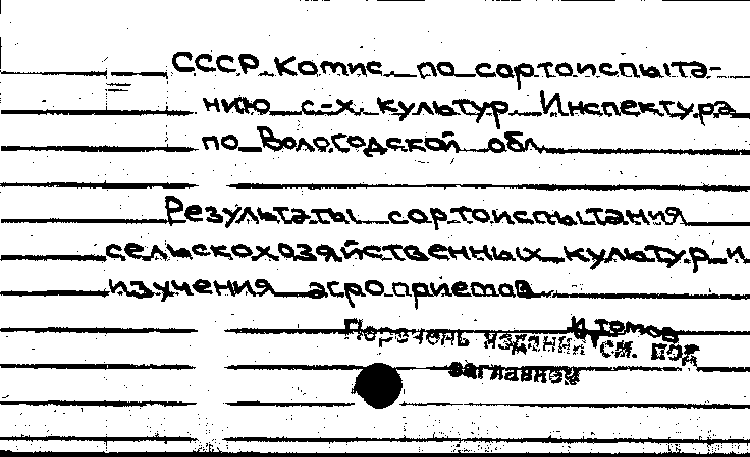 СССР. Комис. по сортоиспыта-
нию с-х. культур. Инспектура
по Вологодской обл.
Результаты сортоиспытания
сельскохозяйственных культур и
изучения агроприемов.
и томов
Перечень изданий см. под
заглавием